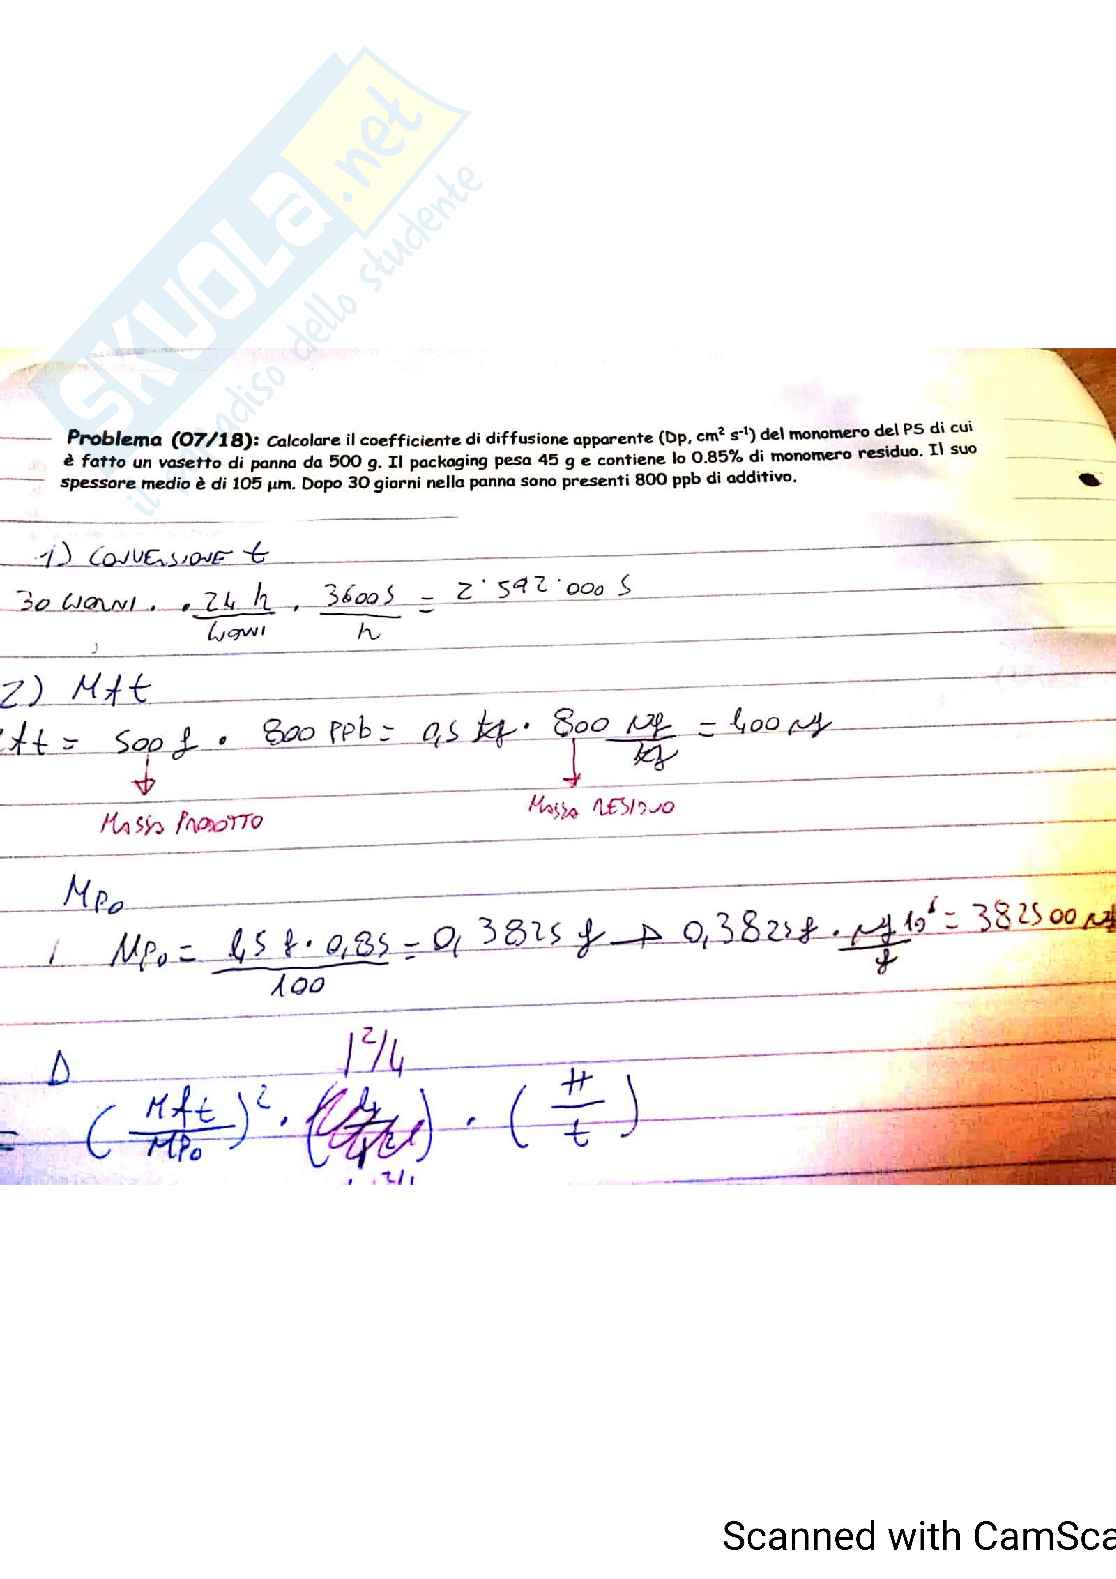 SKUOLA.net
il paradiso dello studente
Problema (07/18): Calcolare il coefficiente di diffusione apparente (Dp, cm² s⁻¹) del monomero del PS di cui
è fatto un vasetto di panna da 500 g. Il packaging pesa 45 g e contiene lo 0.85% di monomero residuo. Il suo
spessore medio è di 105 µm. Dopo 30 giorni nella panna sono presenti 800 ppb di additivo.
1) CONVERSIONE t
30 GIORNI . . 24 h / GIORNI . 3600 S / h = 2˙592˙000 S
2) MAt
At = 500 g . 800 PPb = 0,5 kg . 800 µg / kg = 400 µg
MASSA PRODOTTO
MASSA RESIDUO
MP₀
MP₀ = 45 g . 0,85 / 100 = 0,3825 g → 0,3825 g . µg 10⁶ / g = 382500 µg
D
l²/4
= (MAt / MP₀)² . ( ) . (π / t)
Scanned with CamSca